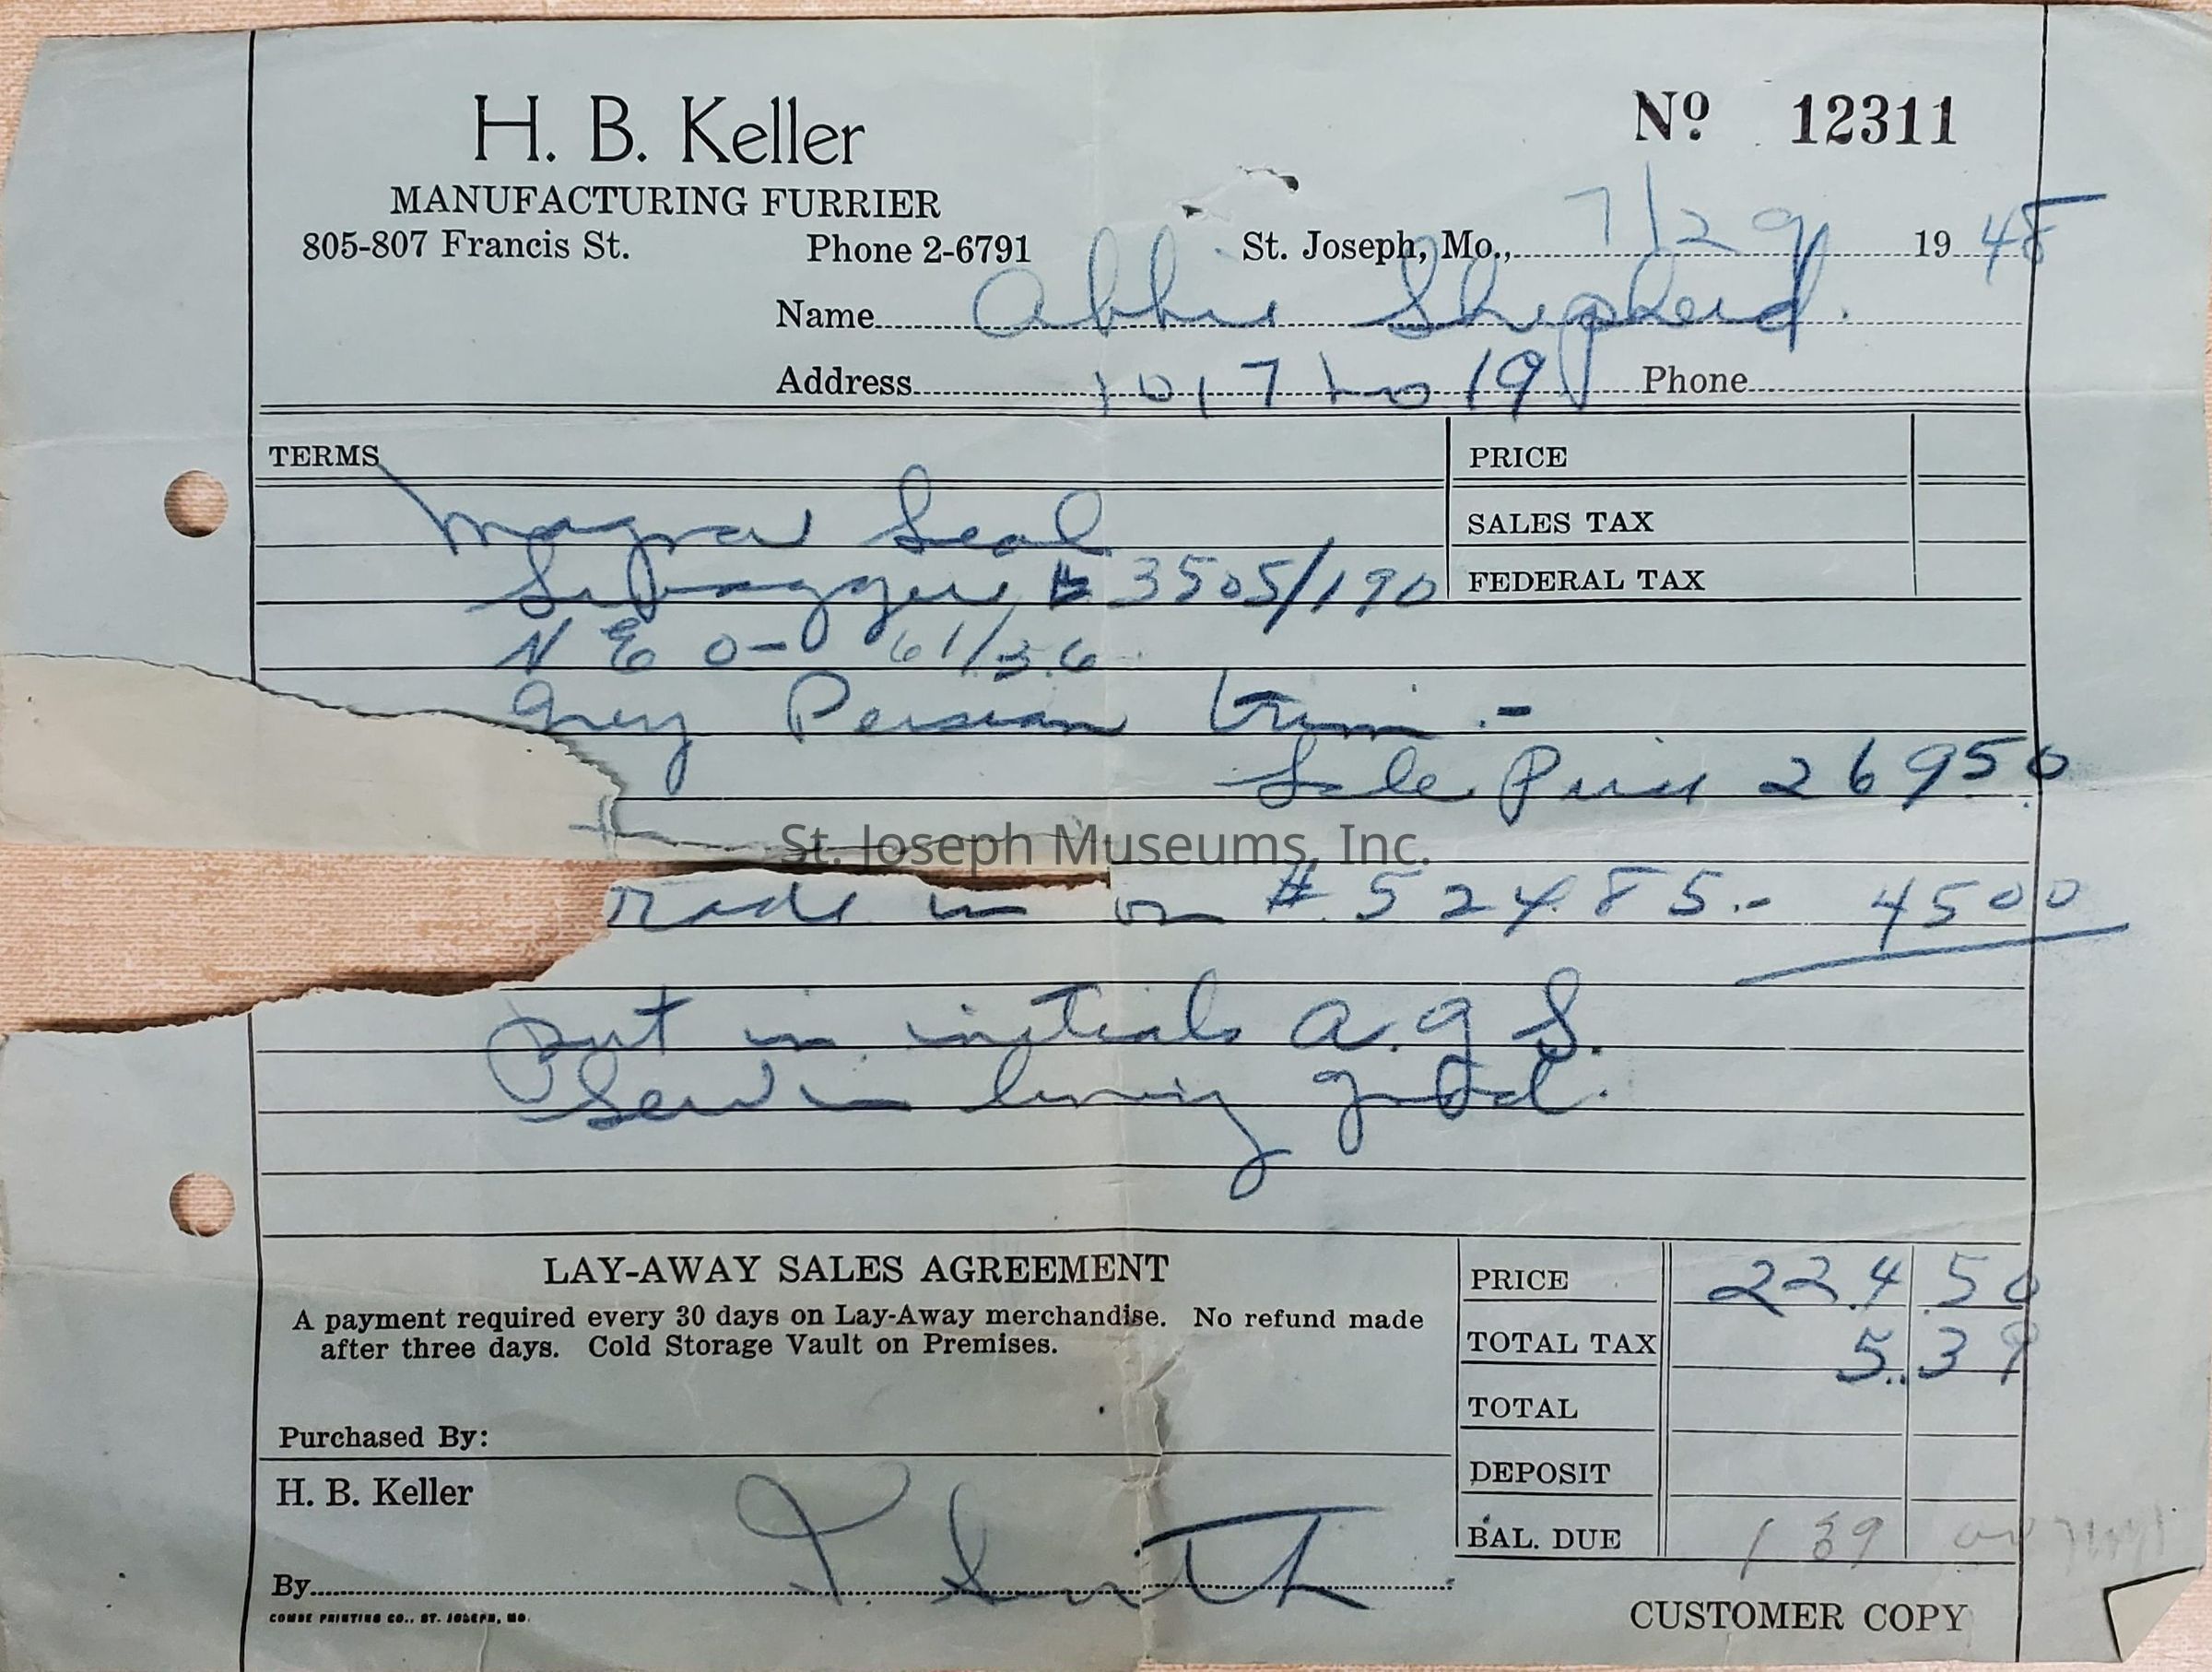 H. B. Keller
Nº 12311
MANUFACTURING FURRIER
805-807 Francis St. Phone 2-6791
St. Joseph, Mo., 7/29 1948
Name Abbie Shepherd.
Address 1017 no 19 Phone
TERMS
PRICE
SALES TAX
FEDERAL TAX
Seal
Swagger # 3505/190
N E O- 61/36
Grey Persian trim.-
Sale Price 26950
St. Joseph Museums, Inc.
trade in on # 52485.- 4500
put in initials a. g S.
Sew in lining
LAY-AWAY SALES AGREEMENT
A payment required every 30 days on Lay-Away merchandise. No refund made
after three days. Cold Storage Vault on Premises.
PRICE 224 50
TOTAL TAX 5.39
TOTAL
DEPOSIT
BAL. DUE 139
Purchased By:
H. B. Keller
By Smith
COMBE PRINTING CO., ST. JOSEPH, MO.
CUSTOMER COPY